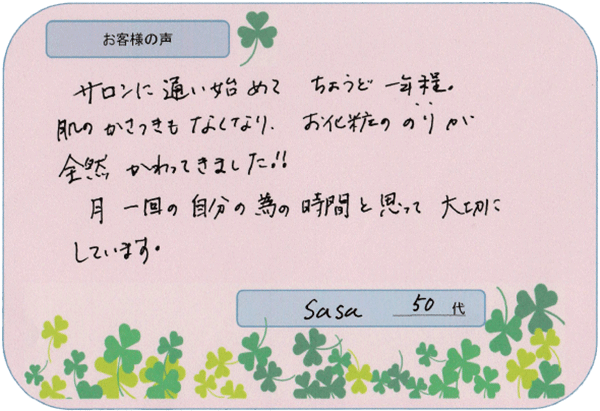 お客様の声
サロンに通い始めて ちょうど 一年程。
肌の かさつきも なくなり、 お化粧の のりが
全然 かわってきました!!
月 一回の 自分の 為の 時間と 思って 大切に
しています。
sasa 50 代